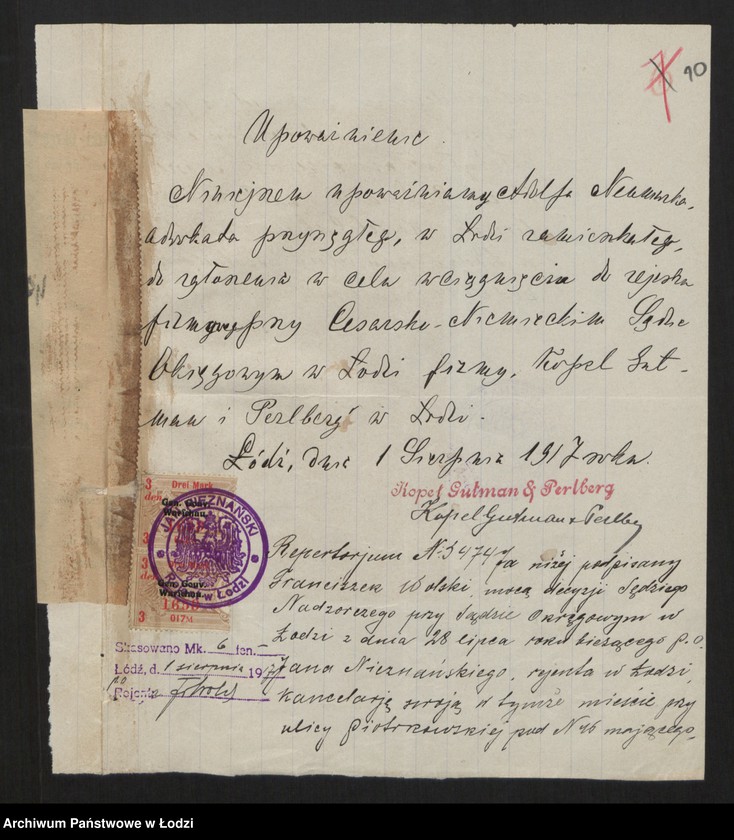 10
Upoważnienie.
Niniejszem upoważniamy Adolfa Neumarka,
adwokata przysięgłego, w Łodzi zamieszkałego,
do zgłoszenia w celu wciągnięcia do rejestru
firmowego przy Cesarsko-Niemieckim Sądzie
Okręgowym w Łodzi firmy, Kopel Gut-
man i Perlberg" w Łodzi.
Łódź, dnia 1 Sierpnia 1917 roku.
Kopel Gutman & Perlberg
Kopel Gutman & Perlberg
Repertorjum N. 5474 Ja niżej podpisany
Franciszek Wolski mocą decyzji Sędziego
Nadzorczego przy Sądzie Okręgowym w
Łodzi z dnia 28 lipca roku bieżącego p.o.
Jana Nieznańskiego, rejenta w Łodzi,
kancelarję swoją w tymże mieście przy
ulicy Piotrkowskiej pod N 46 mającego,
3 Drei Mark
Gen. Gouv.
Warschau.
JAN NIEZNAŃSKI
w Łodzi
Gen. Gouv.
Warschau.
3 017M
Skasowano Mk. 6 fen. -
Łódź, d. 1 sierpnia 1917
po Rejenta
Archiwum Państwowe w Łodzi